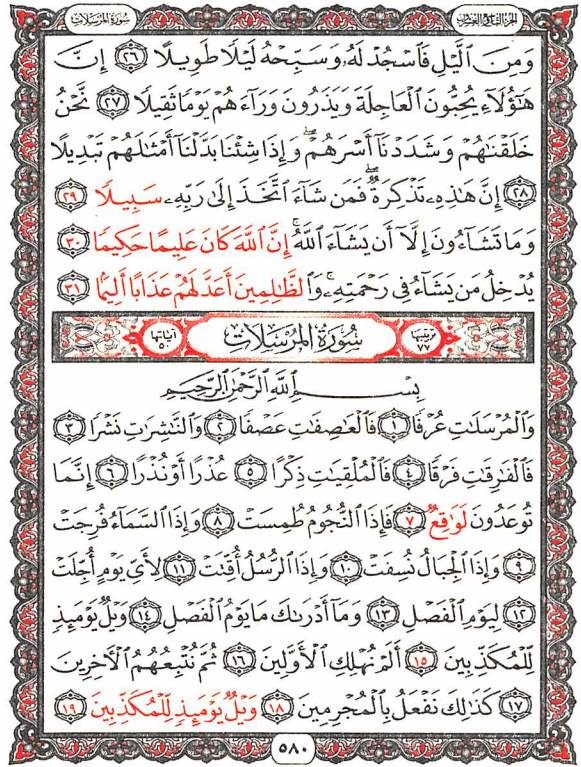 سُورَةُ المُرْسَلَات الجزء التاسع والعشرون
وَمِنَ ٱلَّيۡلِ فَٱسۡجُدۡ لَهُۥ وَسَبِّحۡهُ لَيۡلٗا طَوِيلًا ٢٦ إِنَّ
هَٰٓؤُلَآءِ يُحِبُّونَ ٱلۡعَاجِلَةَ وَيَذَرُونَ وَرَآءَهُمۡ يَوۡمٗا ثَقِيلٗا ٢٧ نَّحۡنُ
خَلَقۡنَٰهُمۡ وَشَدَدۡنَآ أَسۡرَهُمۡۖ وَإِذَا شِئۡنَا بَدَّلۡنَآ أَمۡثَٰلَهُمۡ تَبۡدِيلًا
٢٨ إِنَّ هَٰذِهِۦ تَذۡكِرَةٞۖ فَمَن شَآءَ ٱتَّخَذَ إِلَىٰ رَبِّهِۦ سَبِيلٗا ٢٩
وَمَا تَشَآءُونَ إِلَّآ أَن يَشَآءَ ٱللَّهُۚ إِنَّ ٱللَّهَ كَانَ عَلِيمًا حَكِيمٗا ٣٠
يُدۡخِلُ مَن يَشَآءُ فِي رَحۡمَتِهِۦۚ وَٱلظَّٰلِمِينَ أَعَدَّ لَهُمۡ عَذَابًا أَلِيمَۢا ٣١
ترتيبها ٧٧ سُورَةُ المُرْسَلَات آياتها ٥٠
بِسۡمِ ٱللَّهِ ٱلرَّحۡمَٰنِ ٱلرَّحِيمِ
وَٱلۡمُرۡسَلَٰتِ عُرۡفٗا ١ فَٱلۡعَٰصِفَٰتِ عَصۡفٗا ٢ وَٱلنَّٰشِرَٰتِ نَشۡرٗا ٣
فَٱلۡفَٰرِقَٰتِ فَرۡقٗا ٤ فَٱلۡمُلۡقِيَٰتِ ذِكۡرًا ٥ عُذۡرًا أَوۡ نُذۡرًا ٦ إِنَّمَا
تُوعَدُونَ لَوَٰقِعٞ ٧ فَإِذَا ٱلنُّجُومُ طُمِسَتۡ ٨ وَإِذَا ٱلسَّمَآءُ فُرِجَتۡ
٩ وَإِذَا ٱلۡجِبَالُ نُسِفَتۡ ١٠ وَإِذَا ٱلرُّسُلُ أُقِّتَتۡ ١١ لِأَيِّ يَوۡمٍ أُجِّلَتۡ
١٢ لِيَوۡمِ ٱلۡفَصۡلِ ١٣ وَمَآ أَدۡرَىٰكَ مَا يَوۡمُ ٱلۡفَصۡلِ ١٤ وَيۡلٞ يَوۡمَئِذٖ
لِّلۡمُكَذِّبِينَ ١٥ أَلَمۡ نُهۡلِكِ ٱلۡأَوَّلِينَ ١٦ ثُمَّ نُتۡبِعُهُمُ ٱلۡأٓخِرِينَ
١٧ كَذَٰلِكَ نَفۡعَلُ بِٱلۡمُجۡرِمِينَ ١٨ وَيۡلٞ يَوۡمَئِذٖ لِّلۡمُكَذِّبِينَ ١٩
٥٨٠